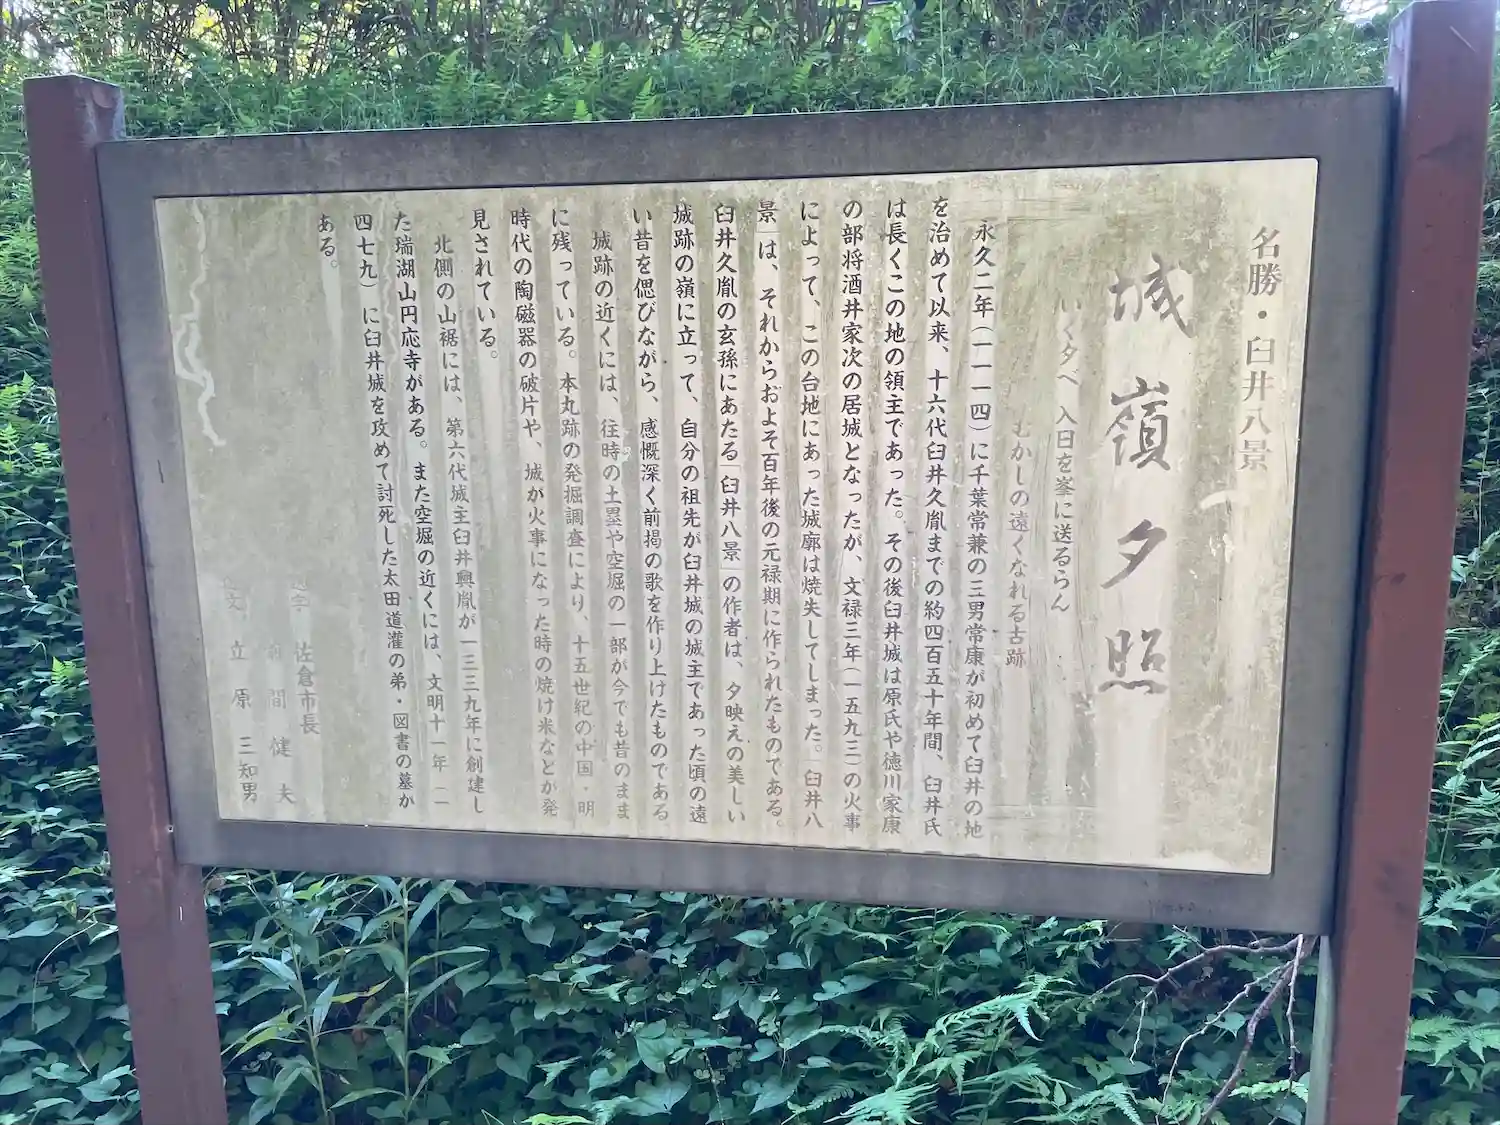 名勝・臼井八景
城嶺夕照
いく夕べ 入日を峯に送るらん
むかしの遠くなれる古跡
永久二年(一一一四)に千葉常兼の三男常康が初めて臼井の地
を治めて以来、十六代臼井久胤までの約四百五十年間、臼井氏
は長くこの地の領主であった。その後臼井城は原氏や徳川家康
の部将酒井家次の居城となったが、文禄三年(一五九三)の火事
によって、この台地にあった城廓は焼失してしまった。「臼井八
景」は、それからおよそ百年後の元禄期に作られたものである。
臼井久胤の玄孫にあたる「臼井八景」の作者は、夕映えの美しい
城跡の嶺に立って、自分の祖先が臼井城の城主であった頃の遠
い昔を偲びながら、感慨深く前掲の歌を作り上げたものである
城跡の近くには、往時の土塁や空堀の一部が今でも昔のまま
に残っている。本丸跡の発掘調査により、十五世紀の中国・明
時代の陶磁器の破片や、城が火事になった時の焼け米などが発
見されている。
北側の山裾には、第六代城主臼井興胤が一三三九年に創建し
た瑞湖山円応寺がある。また空堀の近くには、文明十一年(一
四七九)に臼井城を攻めて討死した太田道灌の弟・図書の墓が
ある。
佐倉市長
間 健夫
文、立原三知男